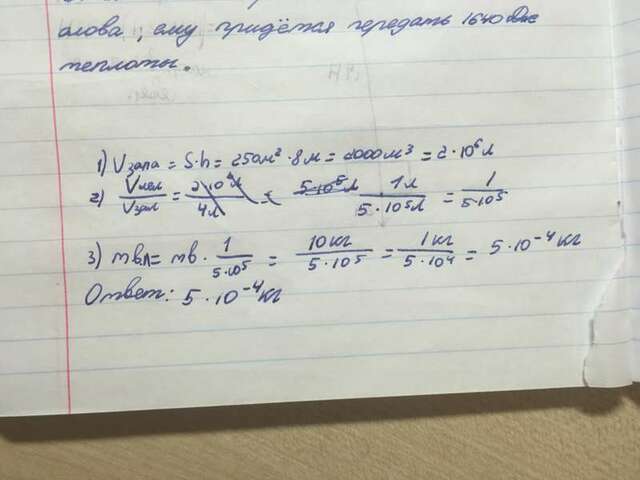 олова, ему придётся передать 1640 Дж
теплоты.
1) Vзала = S·h = 250м² · 8м = 2000м³ = 2·10⁶ л
2) Vлёл/Vзал = 2·10⁶л/4л = 5·10⁵л 1л/5·10⁵л = 1/5·10⁵
3) mвл = mв · 1/5·10⁵ = 10кг/5·10⁵ = 1кг/5·10⁴ = 5·10⁻⁴кг
Ответ: 5·10⁻⁴кг